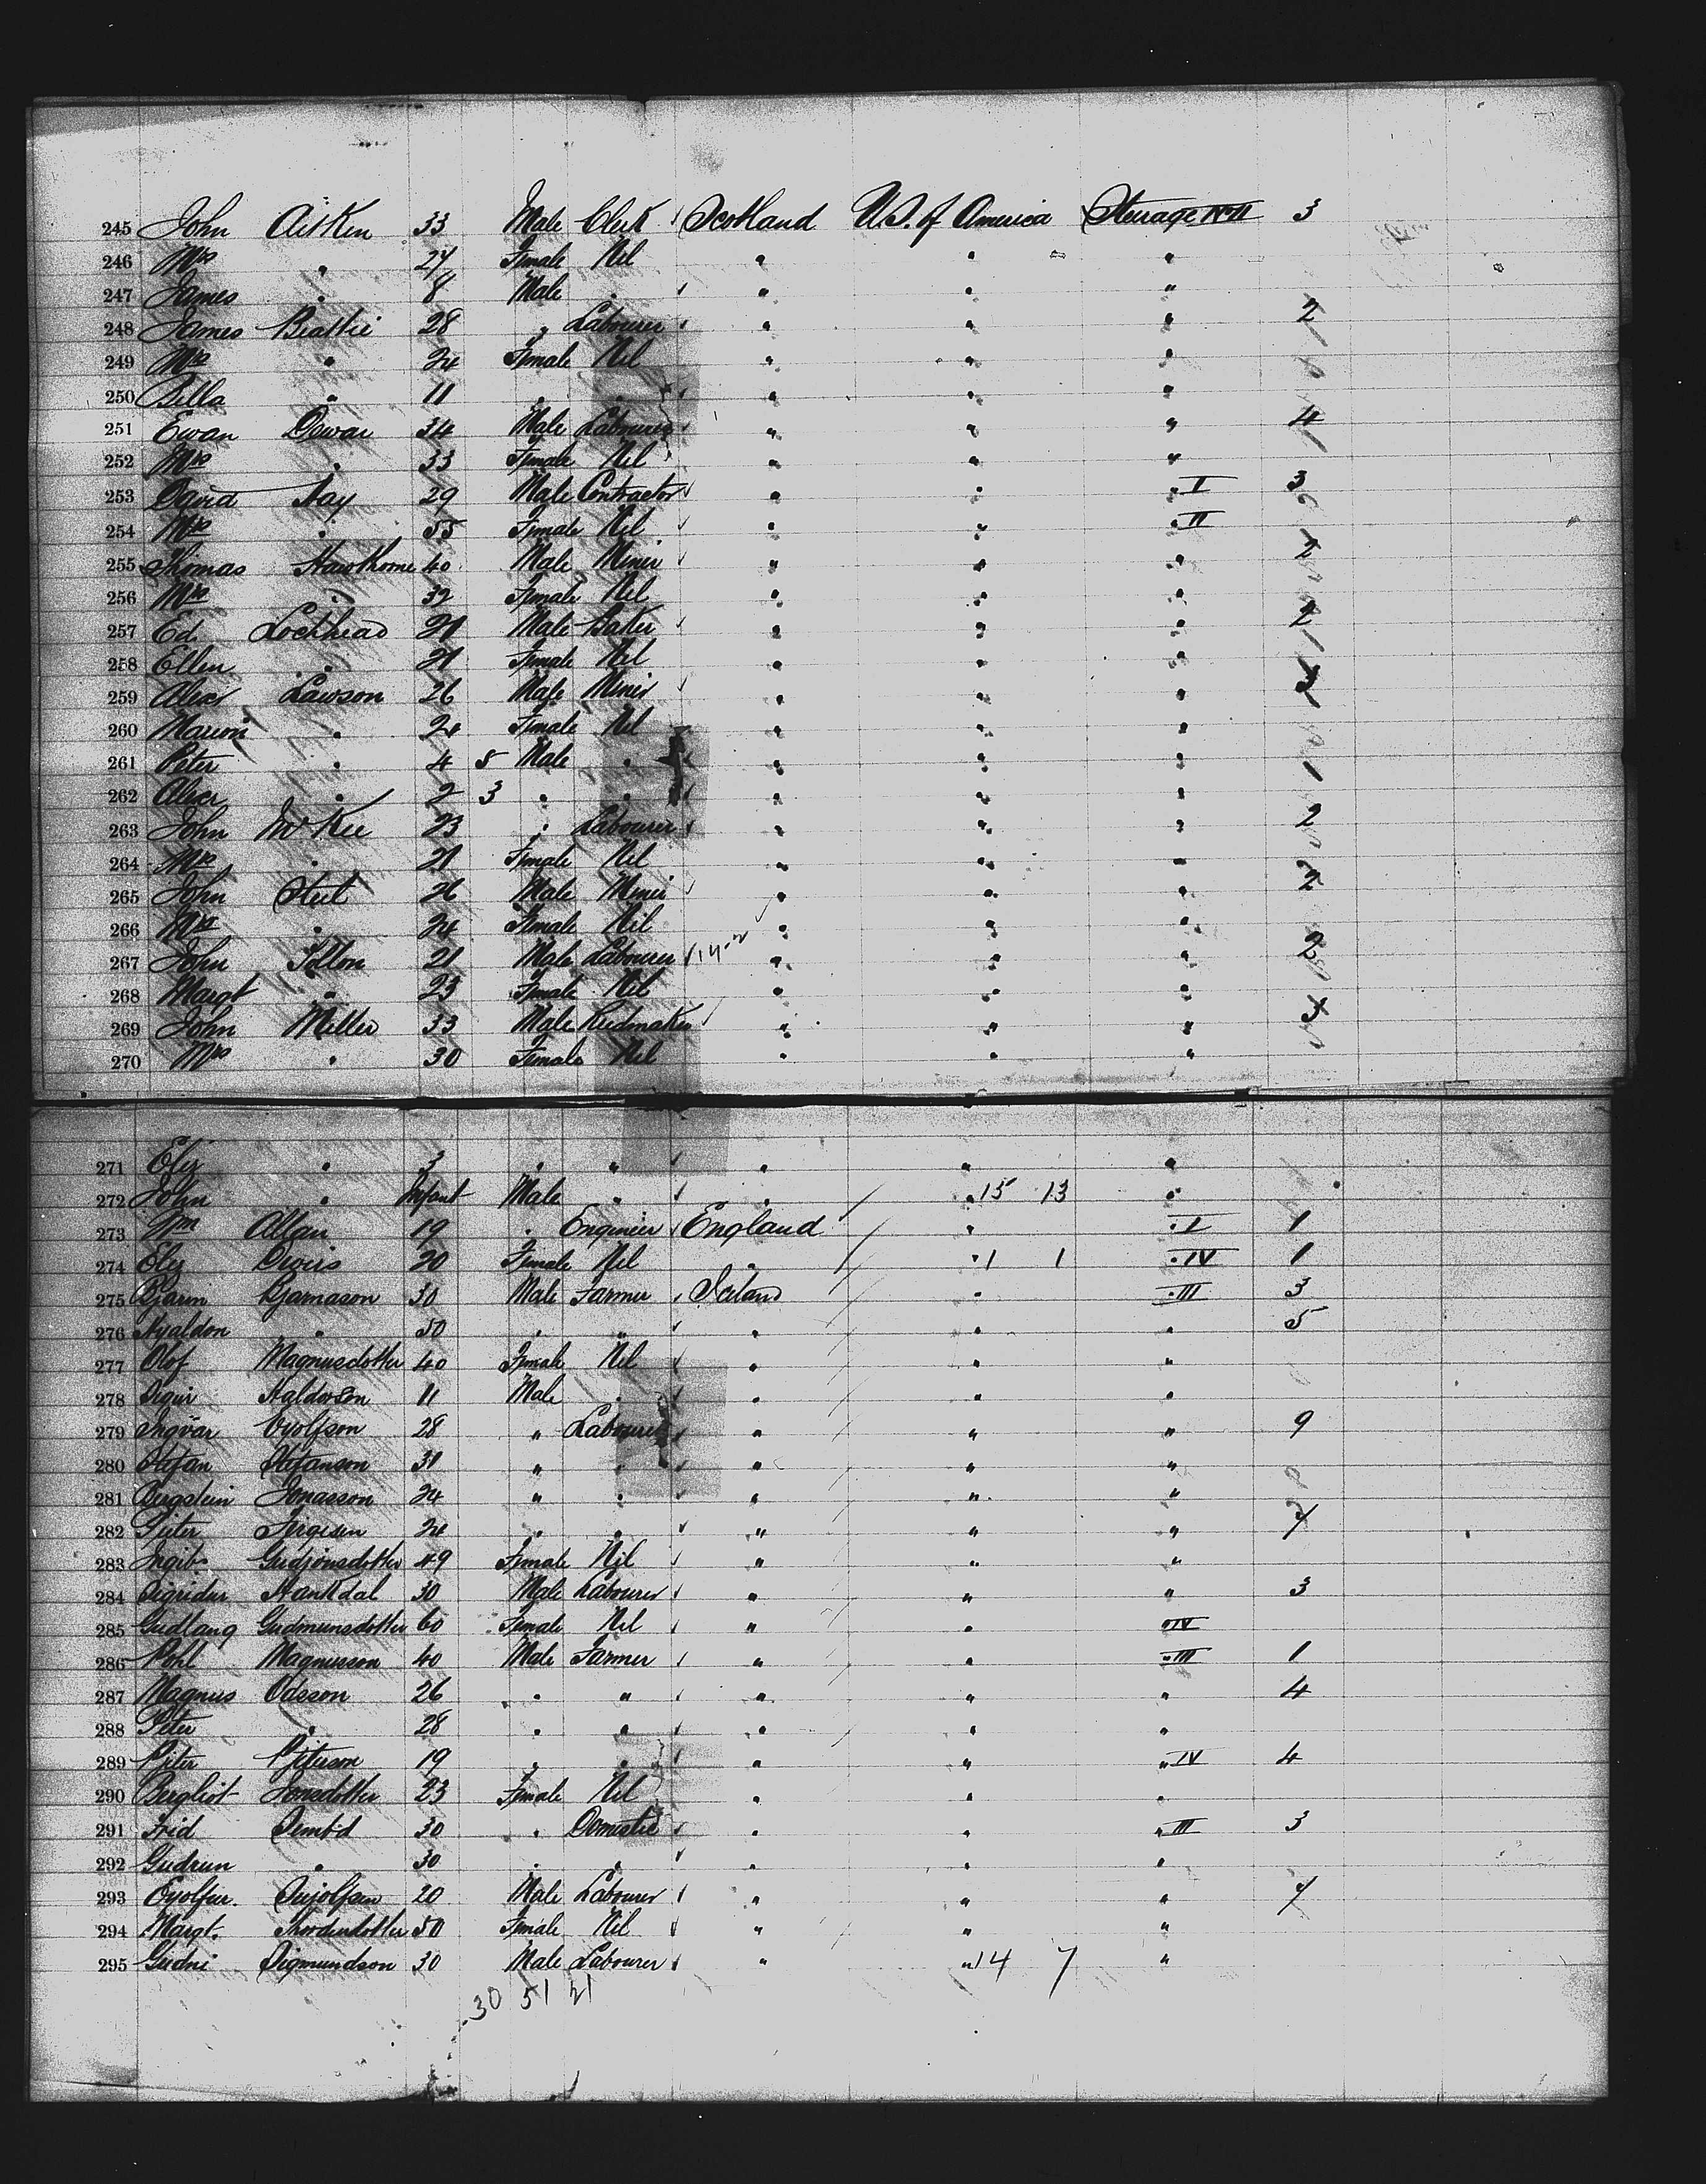 245 John Aitken 33 Male Clerk Scotland U.S. of America Steerage No II 3
246 Mrs " 27 Female Nil " " "
247 James " 8 Male " " " "
248 James Beattie 28 " Labourer " " " 2
249 Mrs " 24 Female Nil " " "
250 Bella " 11 " " " " "
251 Ewan Dewar 34 Male Labourer " " " 4
252 Mrs " 33 Female Nil " " "
253 David Hay 29 Male Contractor " " " I 3
254 Mrs " 55 Female Nil " " " II
255 Thomas Hawthorne 40 Male Miner " " " 2
256 Mrs " 32 Female Nil " " "
257 Ed. Lochhead 21 Male Baker " " " 2
258 Ellen " 21 Female Nil " " "
259 Alexr Lawson 26 Male Miner " " "
260 Marion " 24 Female Nil " " "
261 Peter " 4 8 Male " " " "
262 Alexr " 2 3 " " " " "
263 John McKee 23 " Labourer " " " 2
264 Mrs " 21 Female Nil " " "
265 John Steel 26 Male Miner " " " 2
266 Mrs " 24 Female Nil " " "
267 John Tollon 21 Male Labourer 14-2 " " " 2
268 Margt " 23 Female Nil " " "
269 John Miller 33 Male Reedmaker " " "
270 Mrs " 30 Female Nil " " "
271 Eliz " 3 " " " " "
272 John " Infant Male " " " 15 13 "
273 Wm Allan 19 " Engineer England " " I 1
274 Eliz 20 Female Nil " " 1 1 " IV 1
275 Bjarni Bjarnason 30 Male Farmer Iceland " " III 3
276 " 50 " " " " " 5
277 Olof Magnusdotter 40 Female Nil " " "
278 Sigur Haldorson 11 Male " " " "
279 Ingvar Oyolfson 28 " Labourer " " " 9
280 Stefan Stefanson 31 " " " " "
281 Bergstein Jonasson 24 " " " " "
282 24 " " " " " 7
283 Ingib. Gudjonsdotter 49 Female Nil " " "
284 Sigridur Hankdal 30 Male Labourer " " " 3
285 Gudlang Gudmunsdotter 60 Female Nil " " " IV
286 Magnusson 40 Male Farmer " " " III 1
287 Magnus Odsson 26 " " " " " 4
288 Peter " 28 " " " " "
289 Pjeter Pjeterson 19 " " " " " IV 4
290 Bergliot Jonsdotter 23 Female Nil " " "
291 Frid 30 " Domestic " " " III 3
292 Gudrun " 30 " " " " "
293 Eyolfur. 20 Male Labourer " " " 7
294 Margt. 50 Female Nil " " "
295 Gudni Sigmundson 30 Male Labourer " " 14 7 "
30 51 21